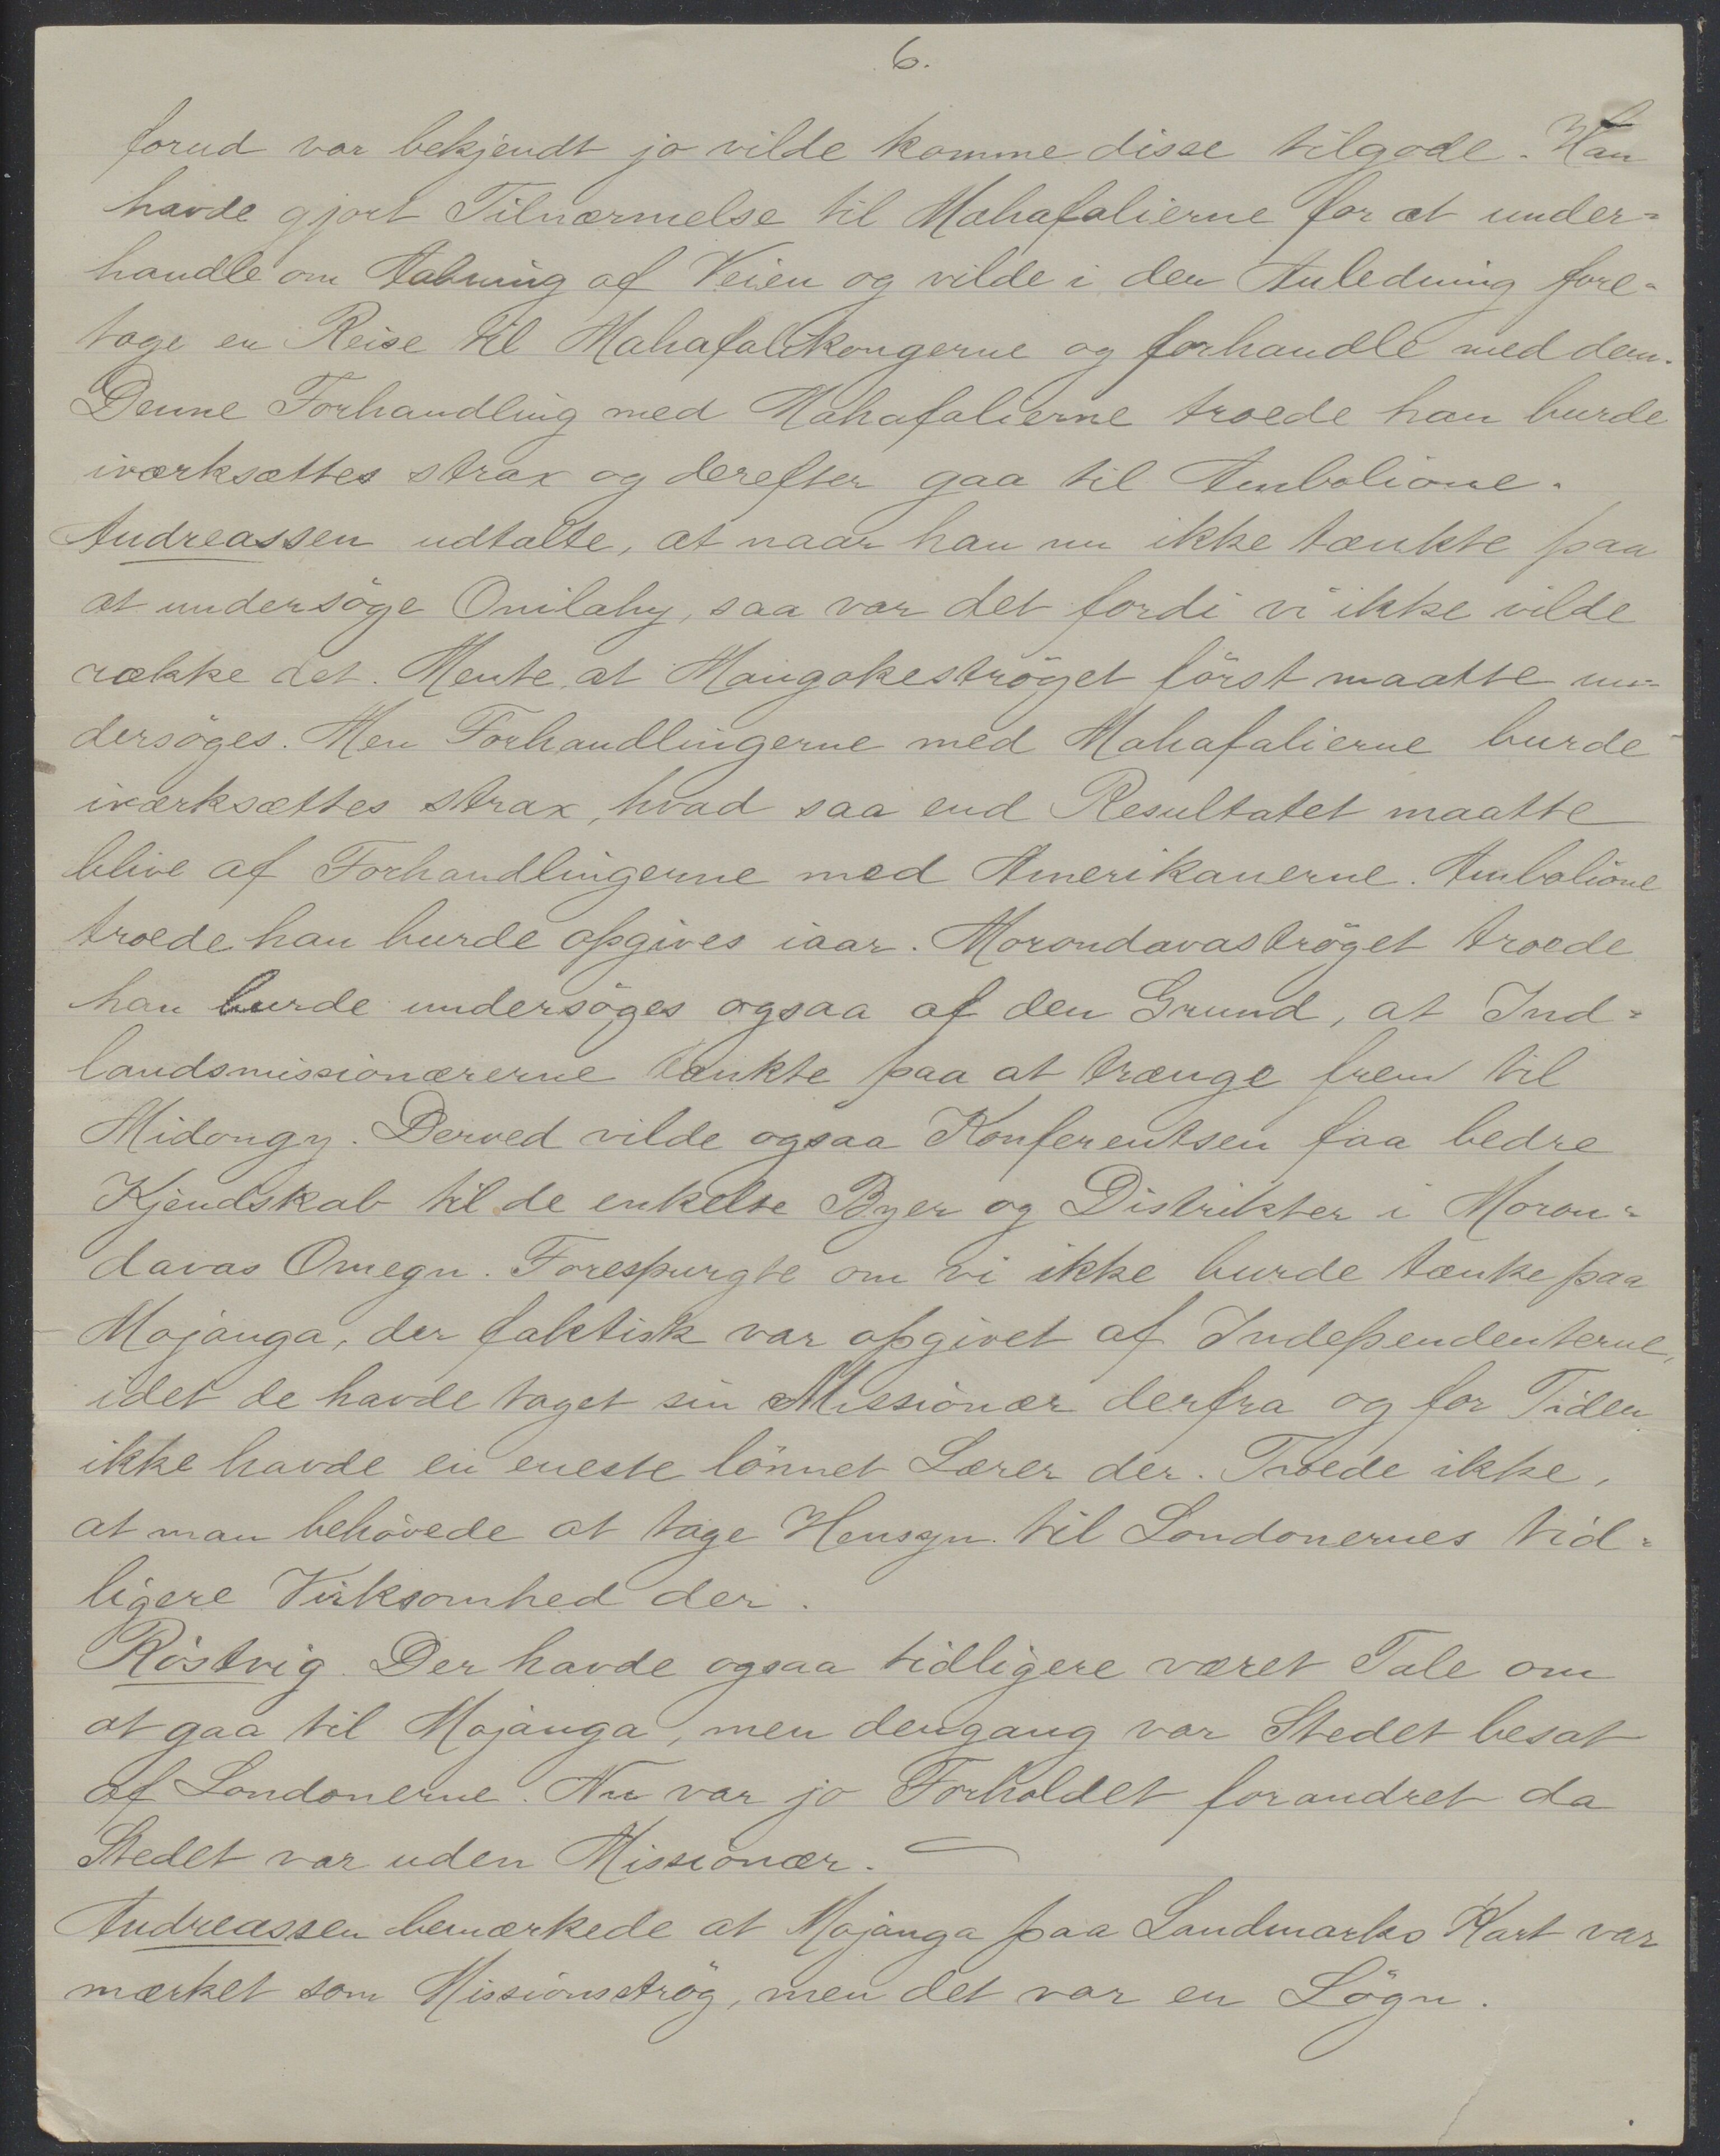 6.
forud var bekjendt jo vilde komme disse tilgode. Han
havde gjort Tilnærmelse til Mahafalierne for at under=
handle om Aabning af Veien og vilde i den Anledning fore=
tage en Reise til Mahafalikongerne og forhandle med dem.
Denne Forhandling med Mahafalierne troede han burde
iværksættes strax og derefter gaa til Ambolione.
Andreassen udtalte, at naar han nu ikke tænkte paa
at undersöge Onilahy, saa var det fordi vi ikke vilde
række det. Mente, at Mangokeströget först maatte un=
dersöges. Men Forhandlingerne med Mahafalierne burde
iværksættes strax, hvad saa end Resultatet maatte
blive af Forhandlingerne med Amerikanerne. Ambolione
troede han burde opgives iaar. Morondavaströget troede
han burde undersöges ogsaa af den Grund, at Ind=
landsmissionærerne tænkte paa at trænge frem til
Midongy. Derved vilde ogsaa Konferentsen faa bedre
Kjendskab til de enkelte Byer og Distrikter i Moron=
davas Omegn. Forespurgte om vi ikke burde tænke paa
Mojanga, der faktisk var opgivet af Independenterne,
idet de havde taget sin Missionær derfra og for Tiden
ikke havde en eneste lönnet Lærer der. Troede ikke,
at man behövede at tage Hensyn til Londonernes tid=
ligere Virksomhed der.
Röstvig. Der havde ogsaa tidligere været Tale om
at gaa til Mojanga, men dengang var Stedet besat
af Londonerne. Nu var jo Forholdet forandret da
Stedet var uden Missionær. —
Andreassen bemærkede at Mojanga paa Landmarks Kart var
mærket som Missionströg, men det var en Lögn.